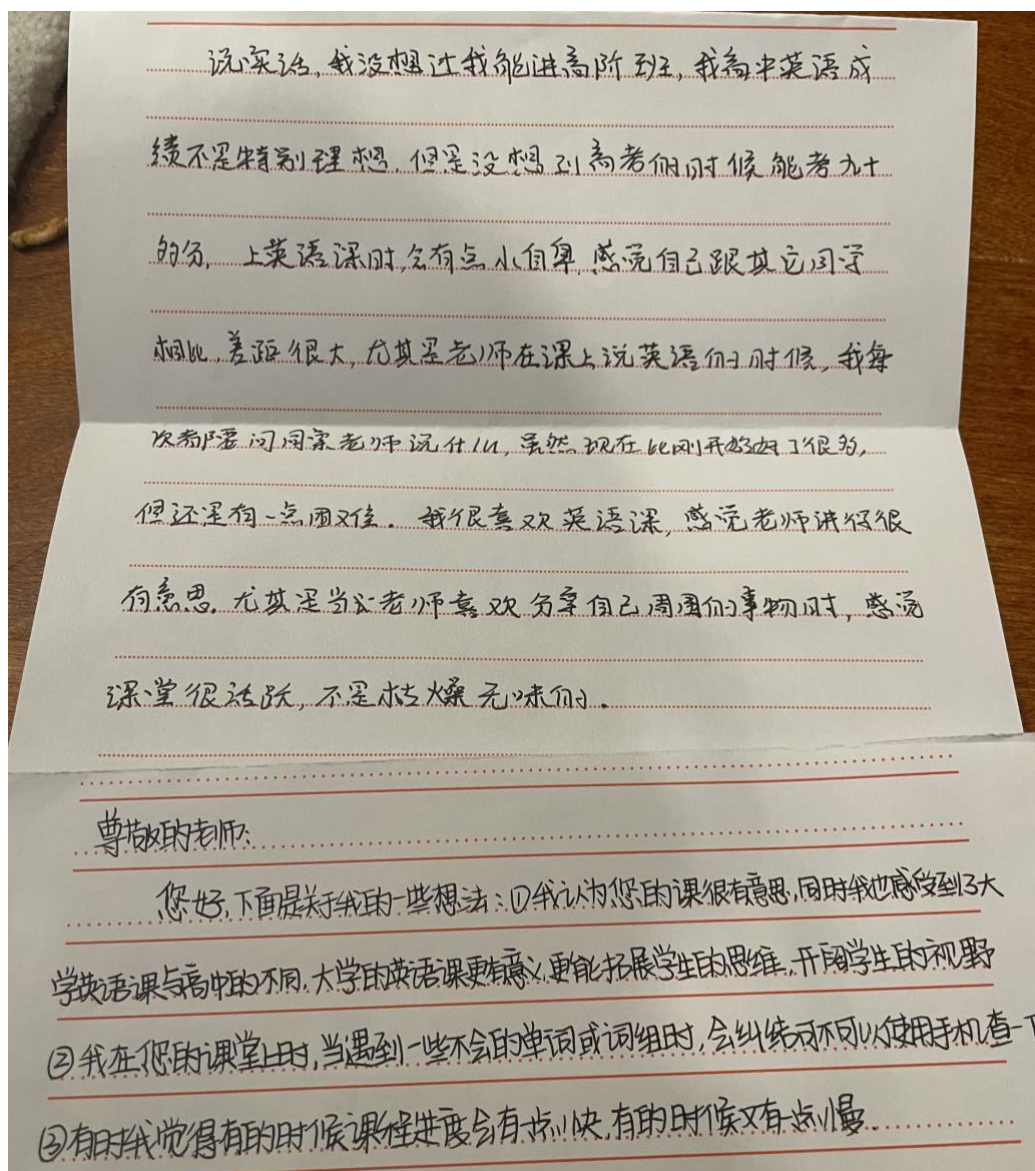 说实话,我没想过我能进高阶班,我高中英语成
绩不是特别理想,但是没想到高考的时候能考九十
多分,上英语课时,会有点小自卑,感觉自己跟其它同学
相比,差距很大,尤其是老师在课上说英语的时候,我每
次都要问同桌老师说什么,虽然现在比刚开始好了很多,
但还是有一点困难.我很喜欢英语课,感觉老师讲得很
有意思.尤其是当老师喜欢分享自己周围的事物时,感觉
课堂很活跃,不是枯燥无味的.
尊敬的老师:
您好,下面是关于我的一些想法:①我认为您的课很有意思,同时我也感受到了大
学英语课与高中的不同.大学的英语课更有意义,更能拓展学生的思维,开阔学生的视野
②我在您的课堂上时,当遇到一些不会的单词或词组时,会纠结可不可以使用手机查一下
③有时我觉得有的时候课程进度会有一点小快,有的时候又有一点小慢.